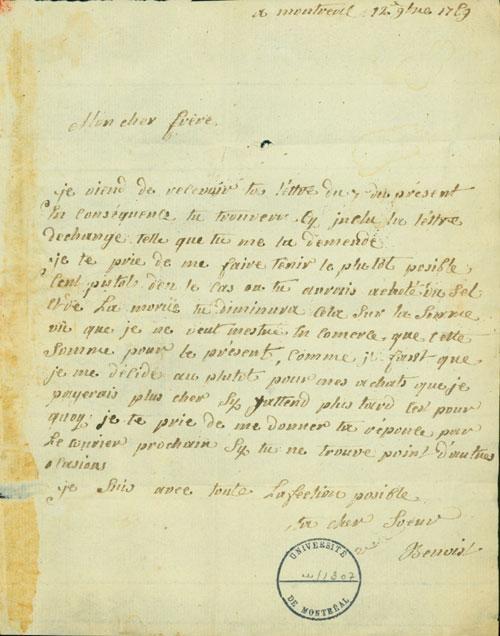 a montreil 12 9bre 1789
Mon cher frère
je viend de recevoir ta lettre du 7 du present
En conséquence tu trouvera Cy jnclu la lettre
dechange telle que tu me la demende
je te prie de me faire tenir le plutôt posible
Cent putot den le cas ou tu aurais acheté du Sel
et de La morue tu diminura cela sur la Somme
vû que je ne veut mettre En comerce que cette
Somme pour le présent, Comme jl faut que
je me décide au plutot pour mes achats que je
payerais plus cher Sy jattend plus tard Cest pour
quoy je te prie de me donner ta réponce par
Le courier prochain Sy tu ne trouve point d'autres
ocasions
je Suis avec toute Lafection posible
ta cher Soeur
Benoist
UNIVERSITÉ
1307
DE MONTRÉAL